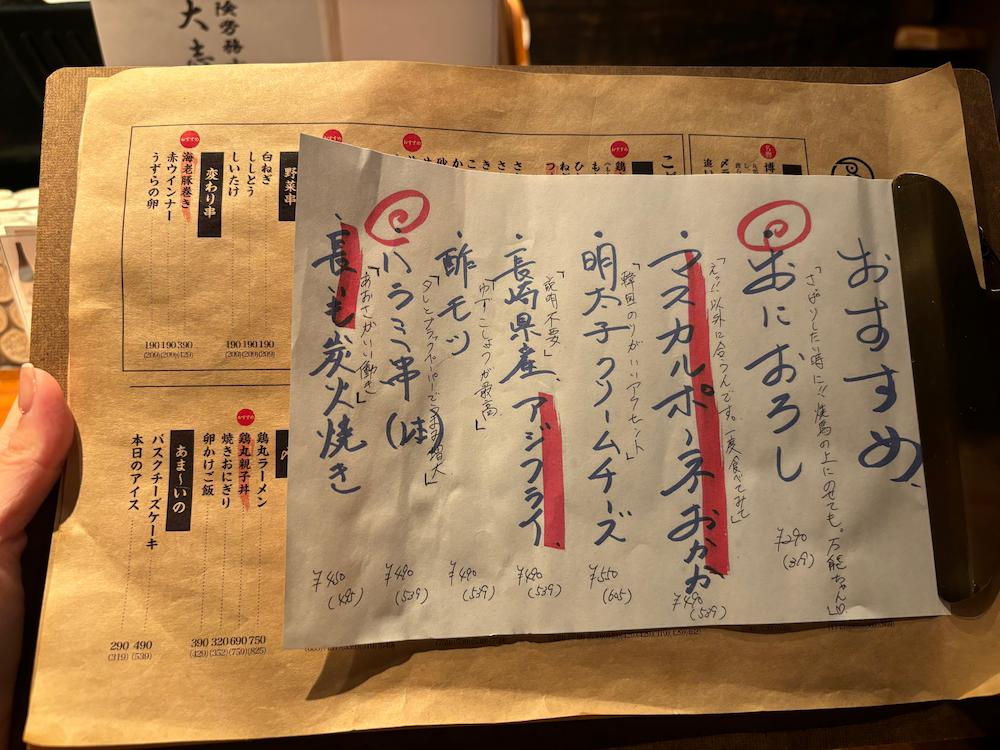 おすすめ
・おにおろし
「さっぱりしたい時に!!焼鳥の上にのせても。万能ちゃん
¥290
(319)
・マスカルポーネおかか
「えっ!!以外に合うんです。一度食べてみて」
¥490
(539)
・明太子クリームチーズ
「韓国のりがいいアクセント」
¥550
(605)
・長崎県産、アジフライ
「説明不要」
¥490
(539)
・酢モツ
「ゆずこしょうが最高」
¥490
(539)
・ハラミ串
「タレとブラックペーパーでうまさ増大」
¥490
(539)
・長いも炭火焼き
「あおさがいい働き」
¥450
(495)
野菜串
白ねぎ
ししとう
しいたけ
190 190 190
(209) (209) (209)
変わり串
おすすめ
海老豚巻き
赤ウインナー
うずらの卵
190 190 390
(209) (209) (429)
鶏丸ラーメン
おすすめ
鶏丸親子丼
焼きおにぎり
卵かけご飯
390 320 690 750
(429) (352) (759) (825)
あま〜いの
バスクチーズケーキ
本日のアイス
290 490
(319) (539)